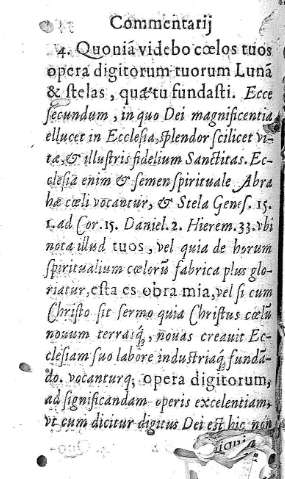 Commentarij
4. Quoniã videbo cœlos tuos
opera digitorum tuorum Lunã
& stelas, quæ tu fundasti. Ecce
secundum, in quo Dei magnificentia
ellucet in Ecclesia, splendor scilicet vi-
ta, & illustris fidelium Sanctitas. Ec-
clesia enim & semen spirituale Abra
hæ cœli vocantur, & Stela Genes. 15.
1. ad Cor. 15. Daniel. 2. Hierem. 33. vbi
nota illud tuos, vel quia de horum
spiritualium cœlorũ fabrica plus glo-
riatur, esta es obra mia, vel si cum
Christo sit sermo quia Christus cœlũ
nouum terrãq́, nouas creauit Ec-
clesiam suo labore industriaq́, fundã-
do. vocanturq́, opera digitorum,
ad significandam operis excelentiam,
vt cum dicitur digitus Dei est hic non